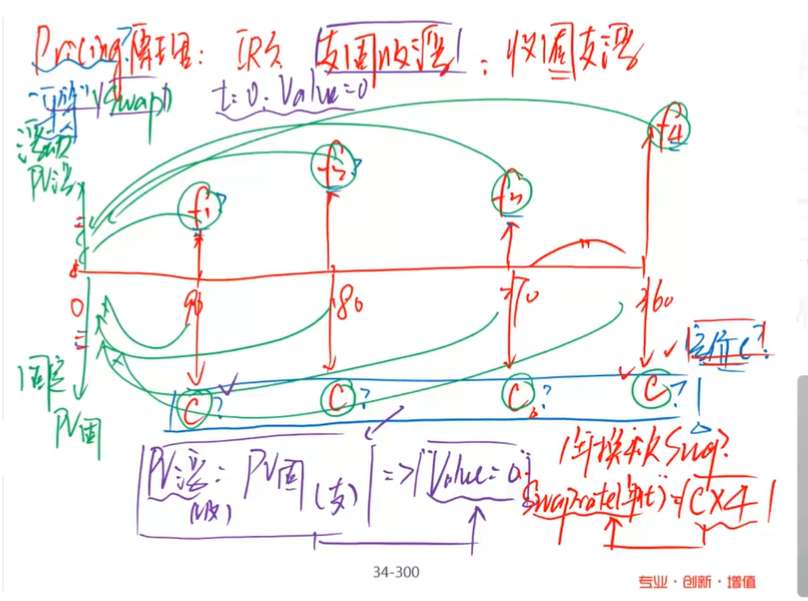 Pricing原理：IRS 支固收浮；收固支浮
"平价" (Swap) t=0, Value=0
浮动
PV浮
f1?
f2?
f3
f4
0
90
180
270
360
固定
PV固
定价C?
C?
C?
C?
C?
PV浮 = PV固 => "Value=0"
(收) (支)
1年换4次Swap?
Swap rate(年化)=C×4
34-300
专业·创新·增值